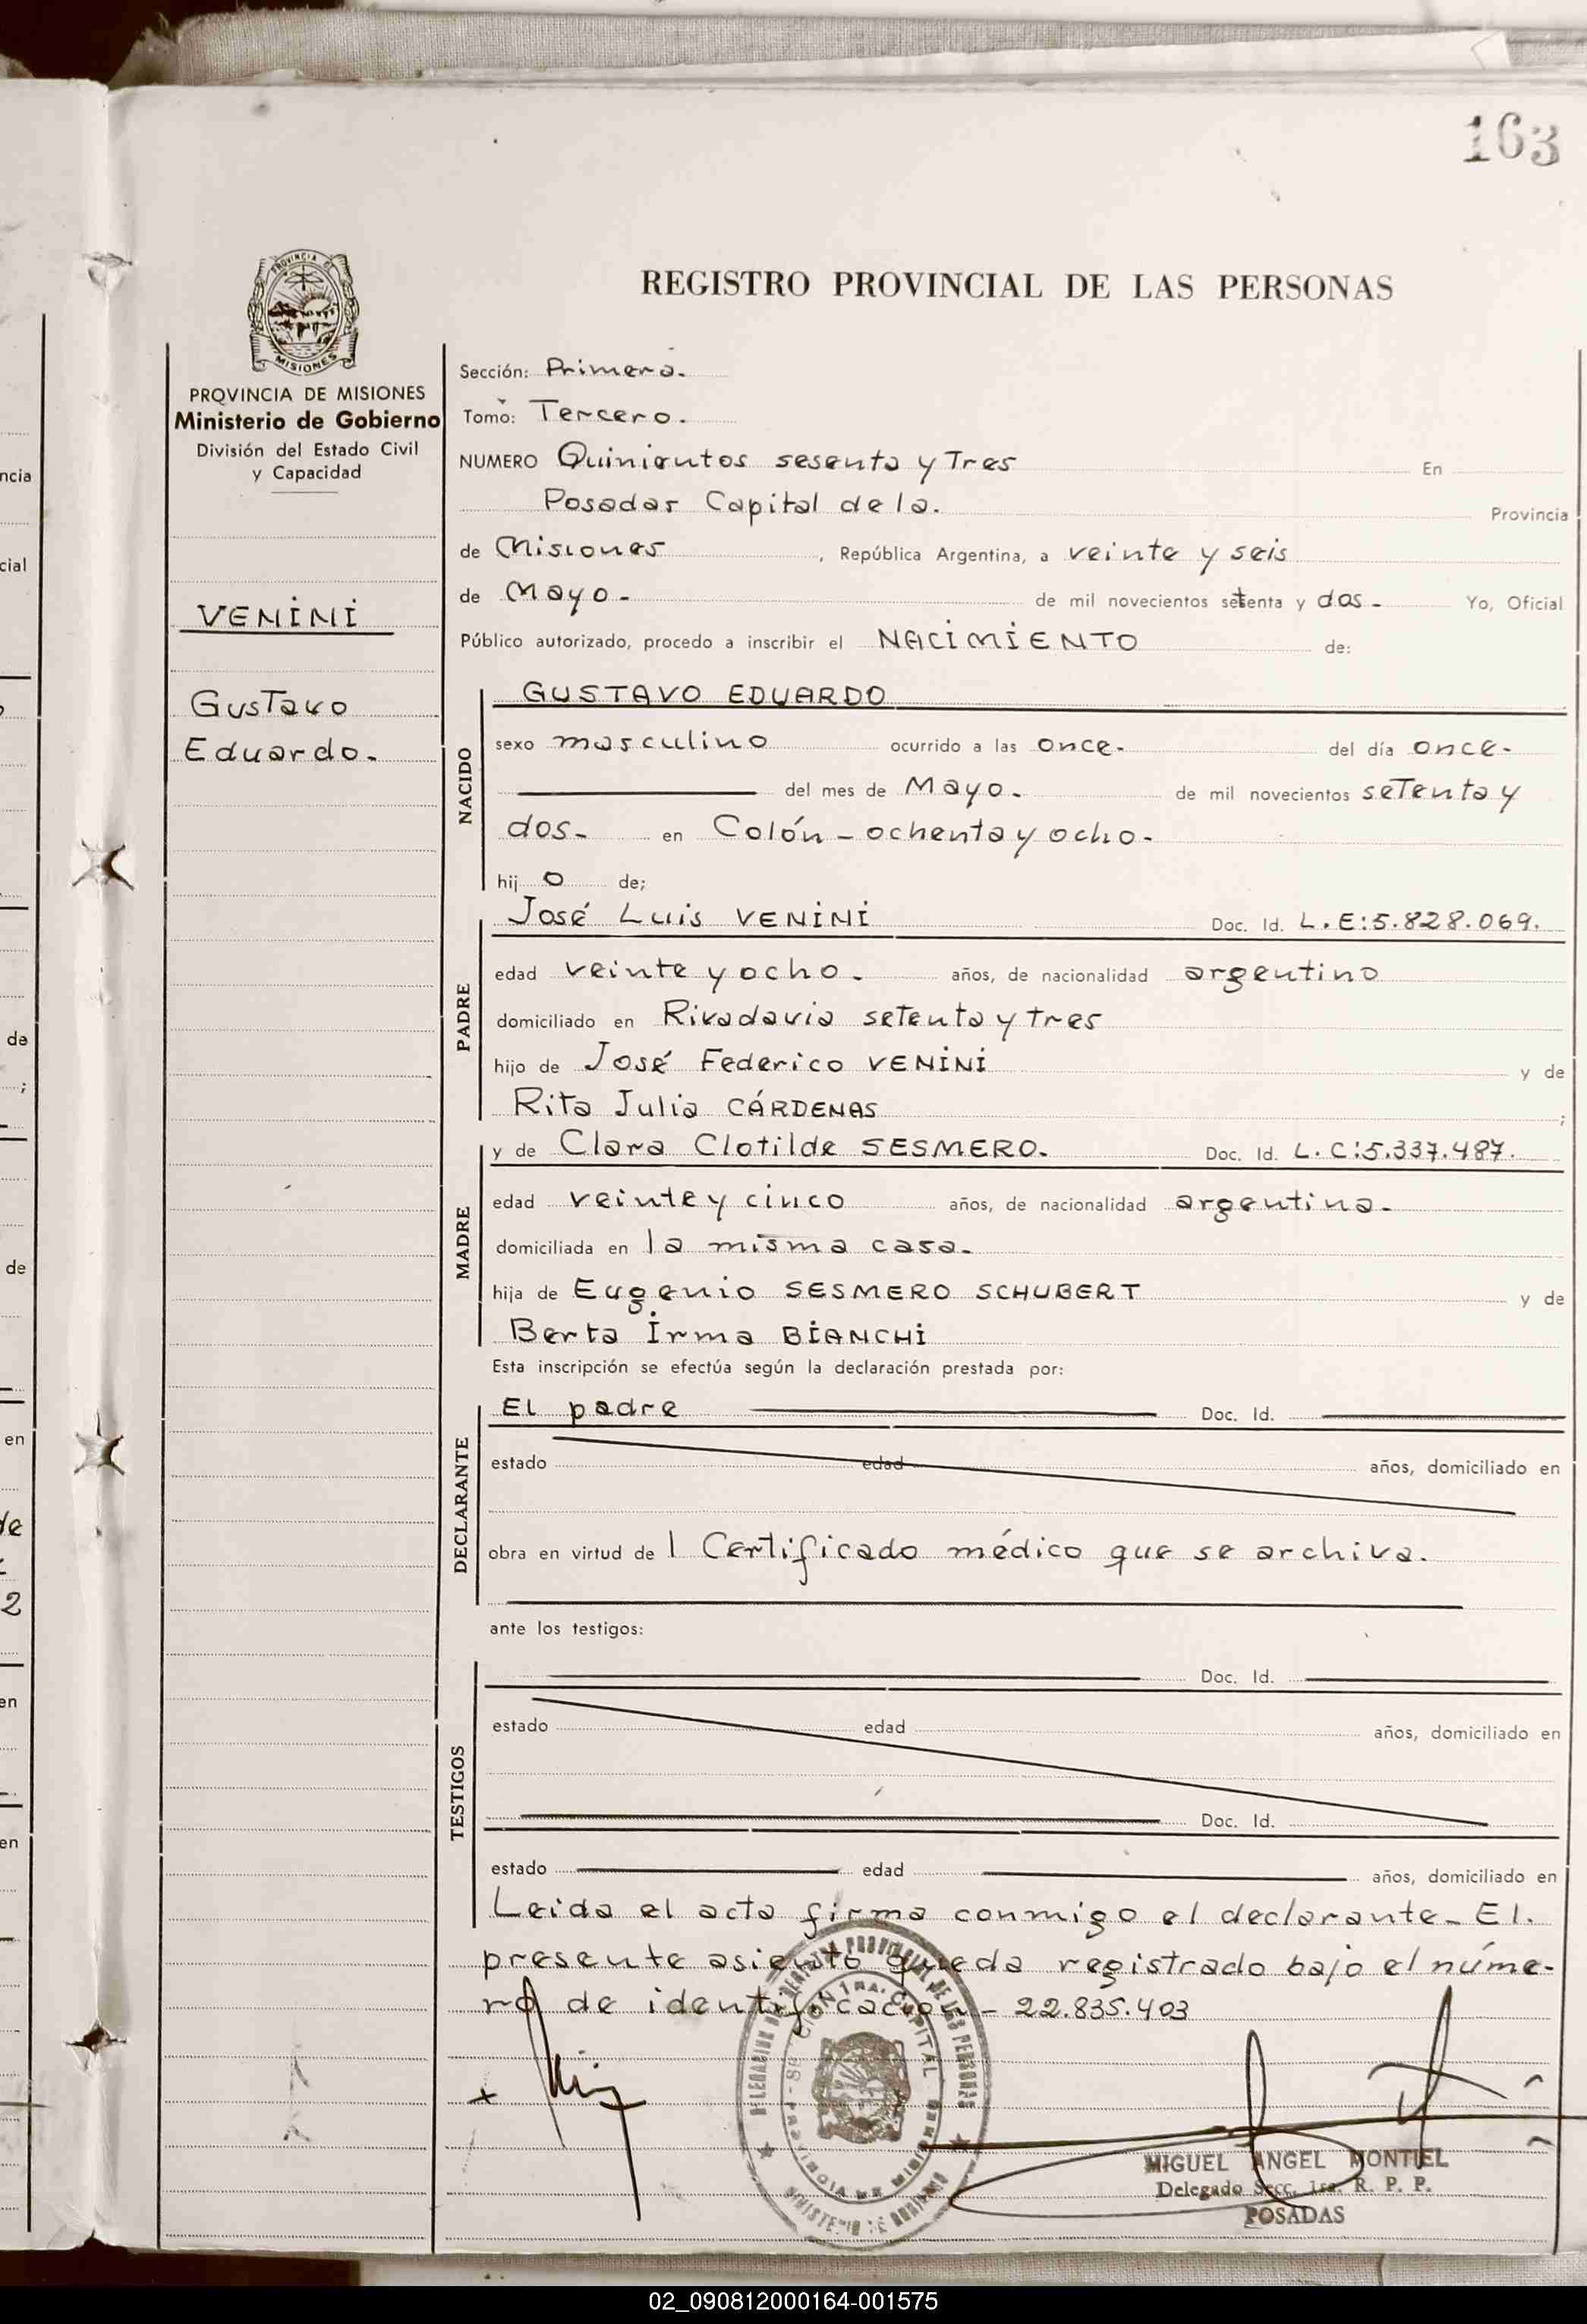 163
REGISTRO PROVINCIAL DE LAS PERSONAS
PROVINCIA DE MISIONES
Ministerio de Gobierno
División del Estado Civil
y Capacidad
VENINI
Gustavo
Eduardo.
Sección: Primera.
Tomo: Tercero.
NUMERO Quinientos sesenta y Tres En
Posadas Capital de la. Provincia
de Misiones, República Argentina, a veinte y seis
de Mayo. de mil novecientos setenta y dos. Yo, Oficial
Público autorizado, procedo a inscribir el NACIMIENTO de:
NACIDO
GUSTAVO EDUARDO
sexo masculino ocurrido a las once. del día once.
del mes de Mayo. de mil novecientos setenta y
dos. en Colón - ochenta y ocho.
hij o de;
PADRE
José Luis VENINI Doc. Id. L.E:5.828.069.
edad veinte y ocho. años, de nacionalidad argentino
domiciliado en Rivadavia setenta y tres
hijo de José Federico VENINI y de
Rita Julia CÁRDENAS ;
MADRE
y de Clara Clotilde SESMERO. Doc. Id. L.C:5.337.487.
edad veinte y cinco años, de nacionalidad argentina.
domiciliada en la misma casa.
hija de Eugenio SESMERO SCHUBERT y de
Berta Irma BIANCHI
Esta inscripción se efectúa según la declaración prestada por:
DECLARANTE
El padre Doc. Id.
estado edad años, domiciliado en
obra en virtud de 1 Certificado médico que se archiva.
ante los testigos:
TESTIGOS
Doc. Id.
estado edad años, domiciliado en
Doc. Id.
estado edad años, domiciliado en
Leida el acta firma conmigo el declarante. El.
presente asiento queda registrado bajo el núme-
ro de identificación - 22.835.403
MIGUEL ANGEL MONTIEL
Delegado Secc. 1ra. R. P. P.
POSADAS
02_090812000164-001575